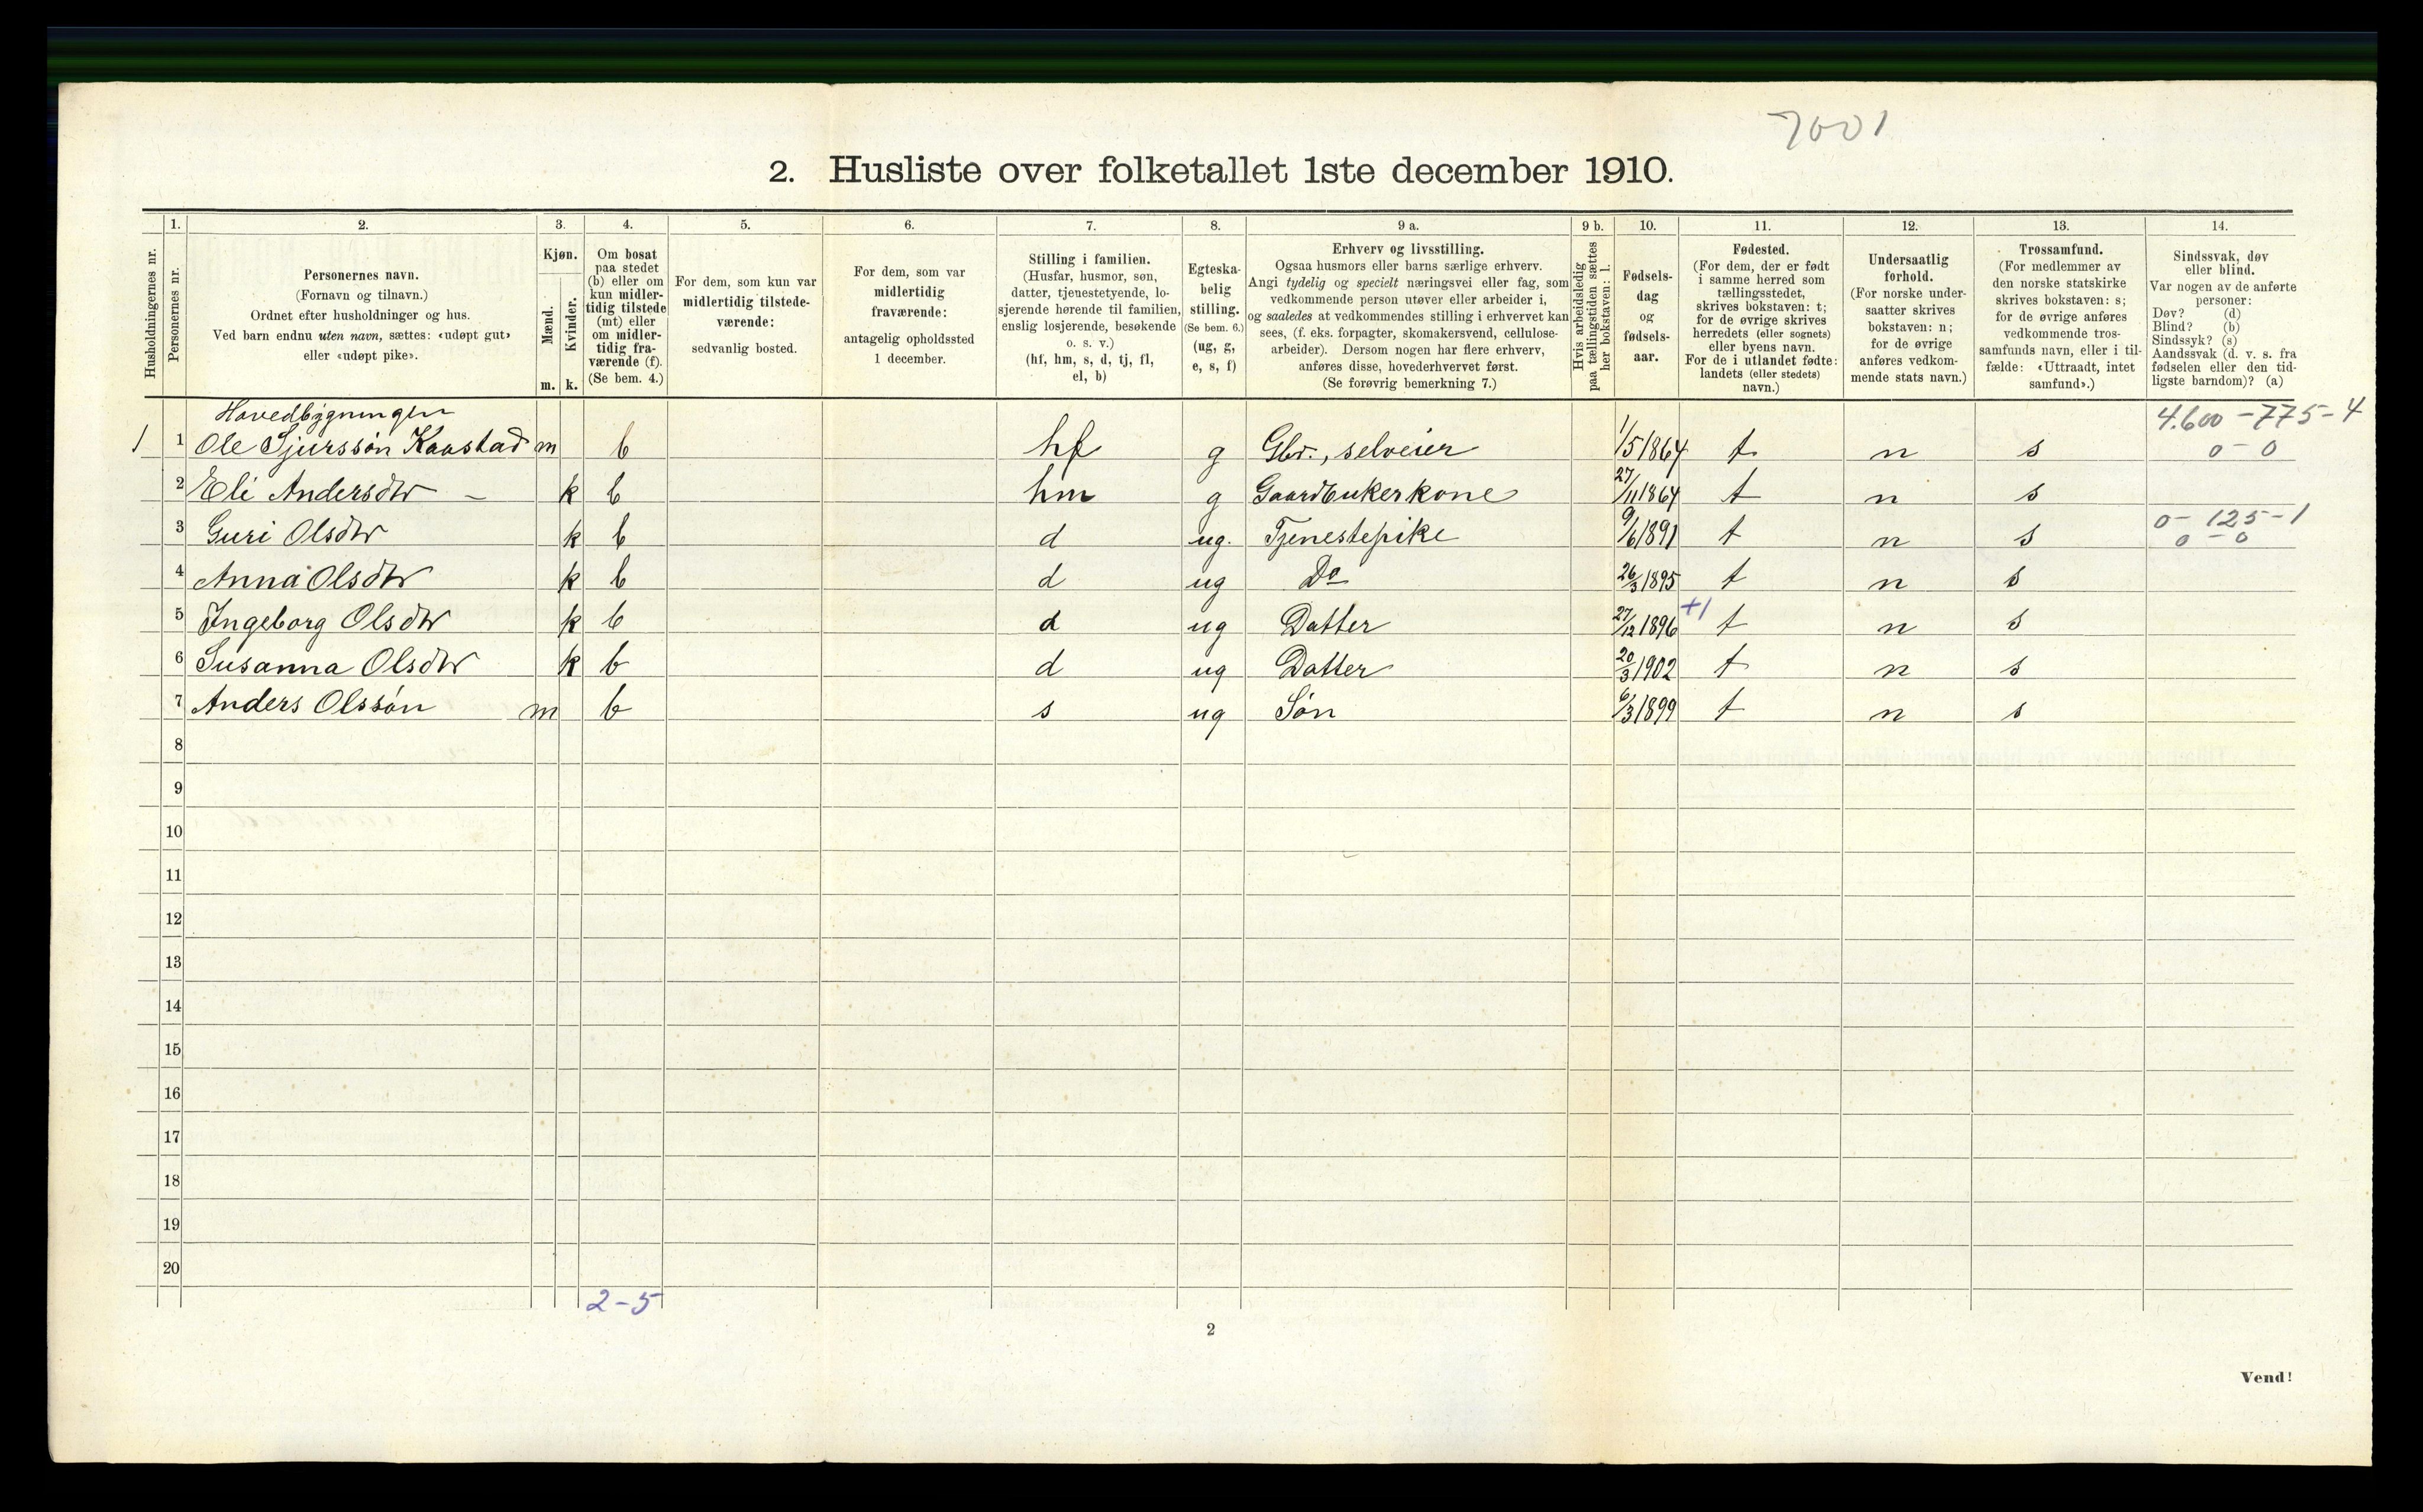 7001
2. Husliste over folketallet 1ste december 1910.
Husholdningernes nr.
1.
Personernes nr.
2.
Personernes navn.
(Fornavn og tilnavn.)
Ordnet efter husholdninger og hus.
Ved barn endnu uten navn, sættes: «udøpt gut»
eller «udøpt pike».
3.
Kjøn.
Mænd.
Kvinder.
m. k.
4.
Om bosat
paa stedet
(b) eller om
kun midler-
tidig tilstede
(mt) eller
om midler-
tidig fra-
værende (f).
(Se bem. 4.)
5.
For dem, som kun var
midlertidig tilstede-
værende:
sedvanlig bosted.
6.
For dem, som var
midlertidig
fraværende:
antagelig opholdssted
1 december.
7.
Stilling i familien.
(Husfar, husmor, søn,
datter, tjenestetyende, lo-
sjerende hørende til familien,
enslig losjerende, besøkende
o. s. v.)
(hf, hm, s, d, tj, fl,
el, b)
8.
Egteska-
belig
stilling.
(Se bem. 6.)
(ug, g,
e, s, f)
9 a.
Erhverv og livsstilling.
Ogsaa husmors eller barns særlige erhverv.
Angi tydelig og specielt næringsvei eller fag, som
vedkommende person utøver eller arbeider i,
og saaledes at vedkommendes stilling i erhvervet kan
sees, (f. eks. forpagter, skomakersvend, cellulose-
arbeider). Dersom nogen har flere erhverv,
anføres disse, hovederhvervet først.
(Se forøvrig bemerkning 7.)
9 b.
Hvis arbeidsledig
paa tællingstiden sættes
her bokstaven: l.
10.
Fødsels-
dag
og
fødsels-
aar.
11.
Fødested.
(For dem, der er født
i samme herred som
tællingsstedet,
skrives bokstaven: t;
for de øvrige skrives
herredets (eller sognets)
eller byens navn.
For de i utlandet fødte:
landets (eller stedets)
navn.)
12.
Undersaatlig
forhold.
(For norske under-
saatter skrives
bokstaven: n;
for de øvrige
anføres vedkom-
mende stats navn.)
13.
Trossamfund.
(For medlemmer av
den norske statskirke
skrives bokstaven: s;
for de øvrige anføres
vedkommende tros-
samfunds navn, eller i til-
fælde: «Uttraadt, intet
samfund».)
14.
Sindssvak, døv
eller blind.
Var nogen av de anførte
personer:
Døv? (d)
Blind? (b)
Sindssyk? (s)
Aandssvak (d. v. s. fra
fødselen eller den tid-
ligste barndom)? (a)
Hovedbygningen
4.600 - 775 - 4
1 1 Ole Sjurssøn Kaastad m b hf g Gbr., selveier 1/5 1864 t n s 0 - 0
2 Eli Andersdtr — k b hm g Gaardbrukerkone 27/11 1864 t n s
0 - 125 - 1
3 Guri Olsdtr k b d ug. Tjenestepike 9/6 1891 t n s 0 - 0
4 Anna Olsdtr k b d ug Do 26/3 1895 t n s
5 Ingeborg Olsdtr k b d ug Datter 27/12 1896 +1 t n s
6 Susanna Olsdtr k b d ug Datter 20/3 1902 t n s
7 Anders Olssøn m b s ug Søn 6/3 1899 t n s
8
9
10
11
12
13
14
15
16
17
18
19
20
2-5
2
Vend!